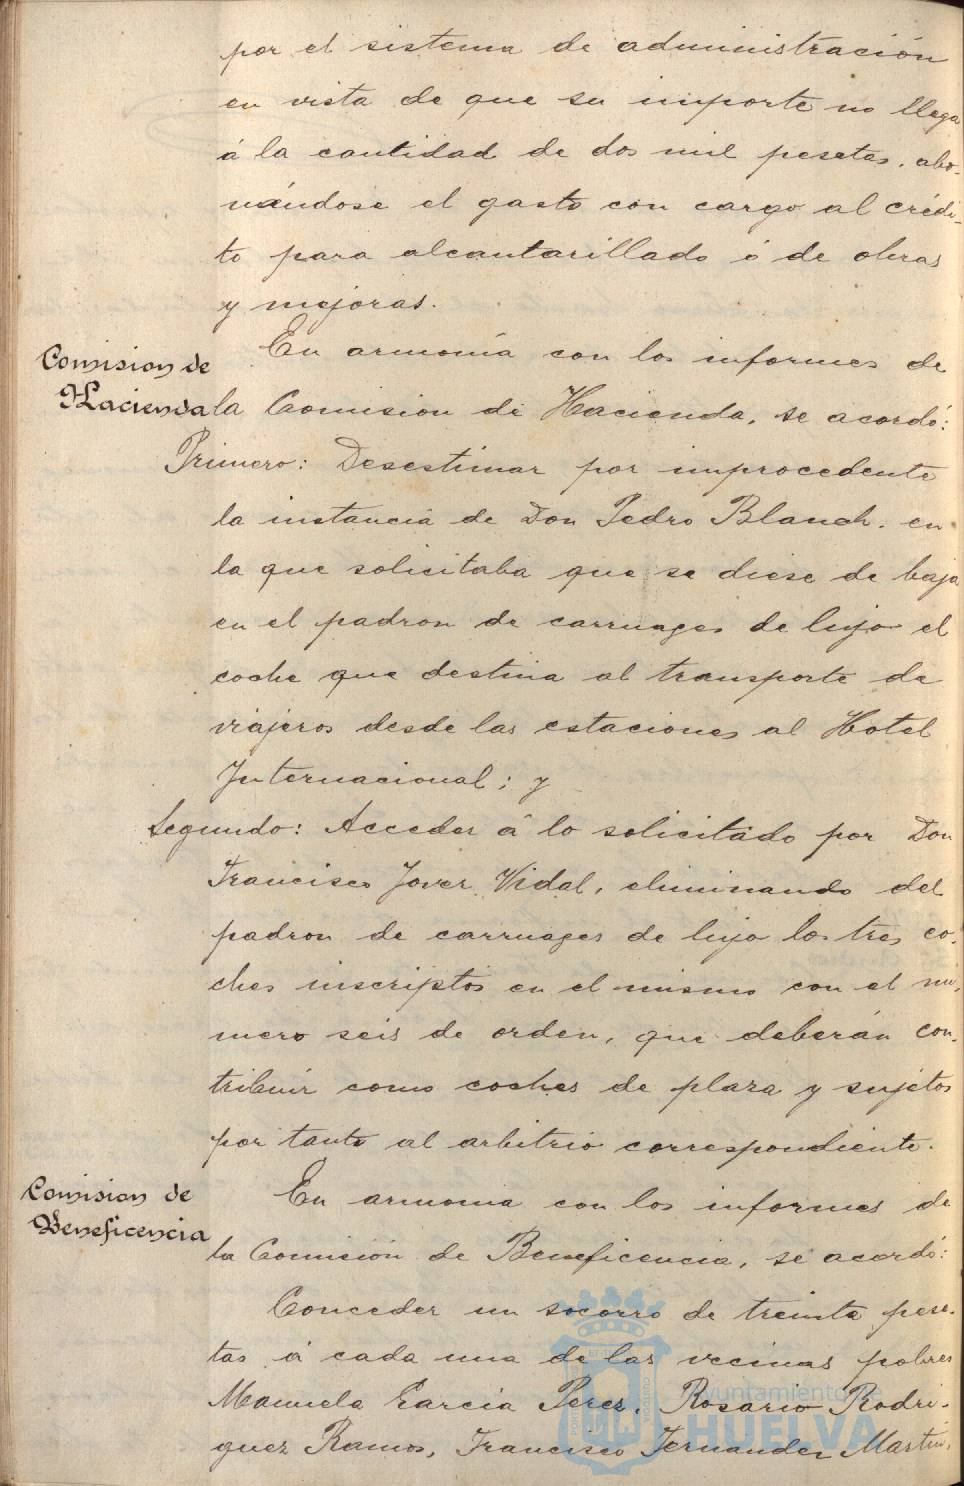 por el sistema de administración
en vista de que su importe no llega
á la cantidad de dos mil pesetas, abo-
nándose el gasto con cargo al crédi-
to para alcantarillado ó de obras
y mejoras.
Comision de
Hacienda
En armonía con los informes de
la Comision de Hacienda, se acordó:
Primero: Desestimar por improcedente
la instancia de Don Pedro Blanch, en
la que solicitaba que se diese de baja
en el padron de carruages de lujo el
coche que destina al transporte de
viajeros desde las estaciones al Hotel
Internacional; y
Segundo: Acceder á lo solicitado por Don
Francisco Jover Vidal, eliminando del
padron de carruages de lujo los tres co-
ches inscriptos en el mismo con el nú-
mero seis de orden, que deberán con-
tribuir como coches de plaza y sujetos
por tanto al arbitrio correspondiente.
Comision de
Beneficencia
En armonia con los informes de
la Comisión de Beneficencia, se acordó:
Conceder un socorro de treinta pese-
tas á cada una de las vecinas pobres
Manuela Garcia Perez, Rosario Rodri-
guez Ramos, Francisco Fernandez Martin,
Ayuntamiento de
HUELVA